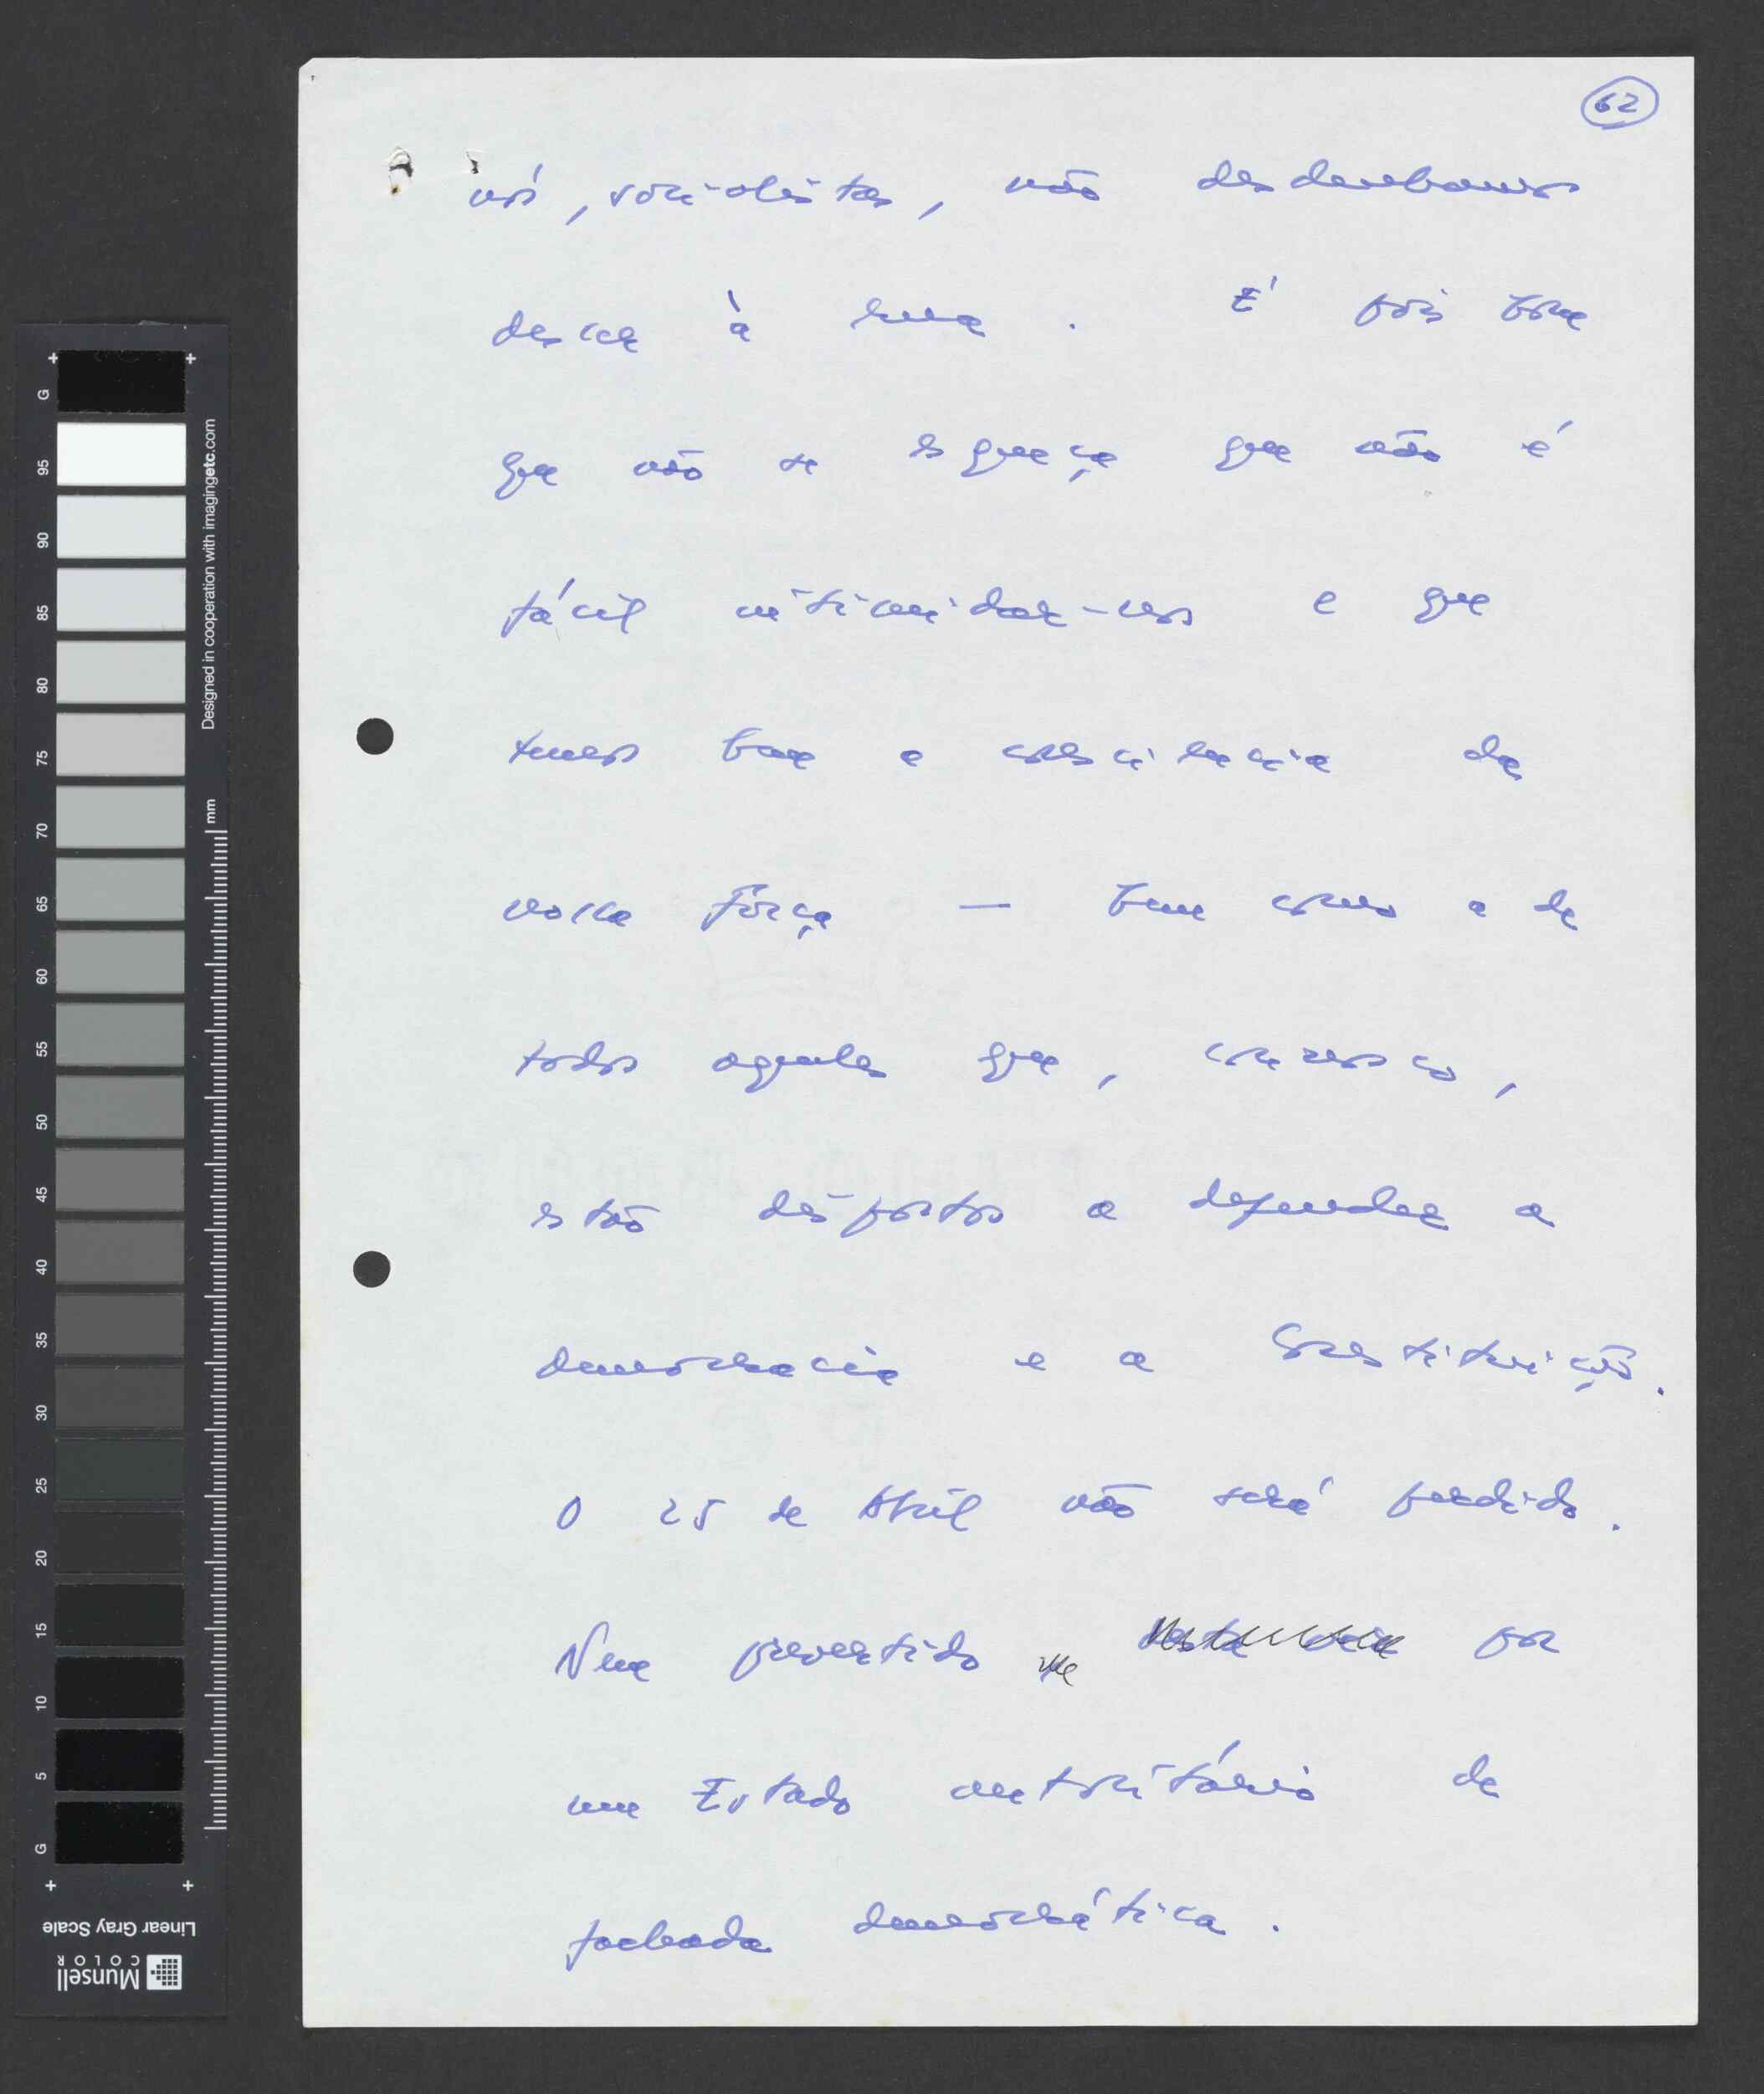 62
nós, socialistas, não desdenhamos
descer à rua. É pois bom
que não se esqueça que não é
fácil intimidar-nos e que
temos bem a consciência da
nossa força — bem como a de
todos aqueles que, connosco,
estão dispostos a defender a
democracia e a Constituição.
O 25 de Abril não será perdido.
Nem pervertido por
um Estado autoritário de
fachada democrática.
G 95 90 85 80 75 70 65 60 55 50 45 40 35 30 25 20 15 10 5 G
Designed in cooperation with imagingetc.com
mm
Linear Gray Scale
Munsell
COLOR